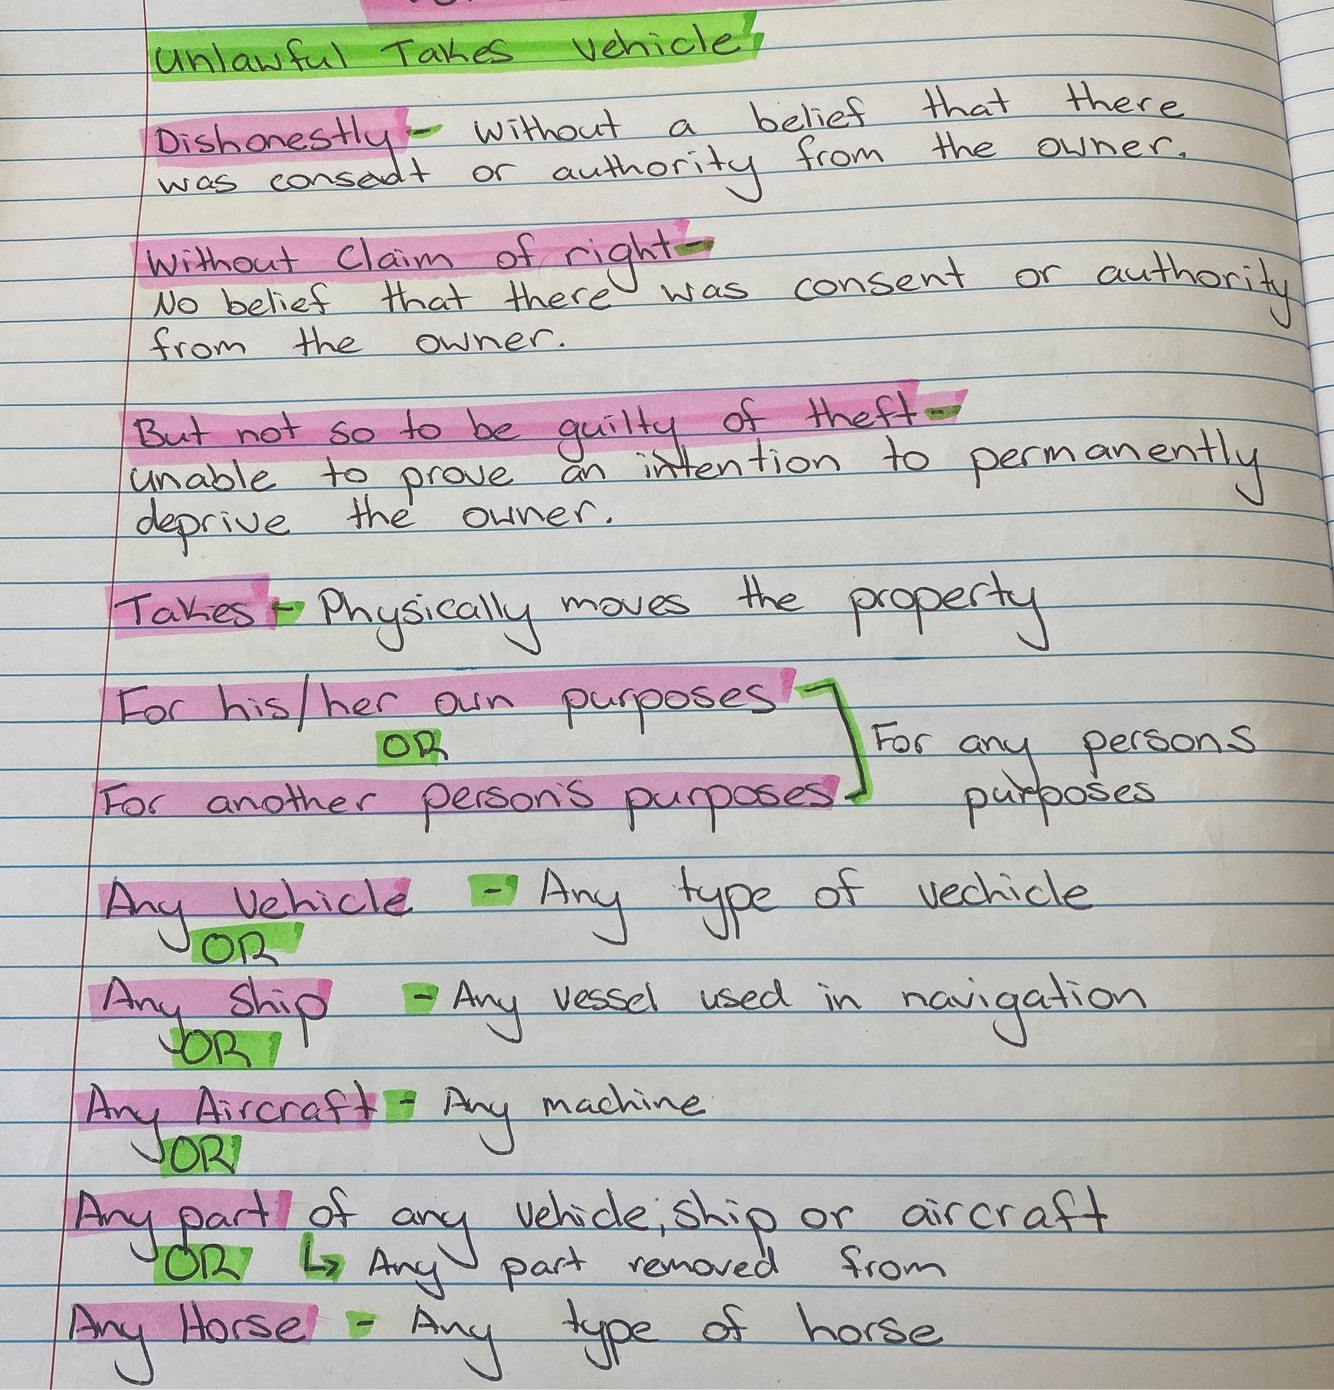 Unlawful Takes Vehicle
Dishonestly - Without a belief that there
was consedt or authority from the owner.
Without Claim of right-
No belief that there was consent or authority
from the owner.
But not so to be guilty of theft-
unable to prove an intention to permanently
deprive the owner.
Takes - Physically moves the property
For his/her own purposes
OR
For another person's purposes
For any persons
purposes
Any Vehicle - Any type of vechicle
OR
Any Ship - Any vessel used in navigation
OR
Any Aircraft - Any machine
OR
Any part of any vehicle, ship or aircraft
OR ↳ Any part removed from
Any Horse - Any type of horse